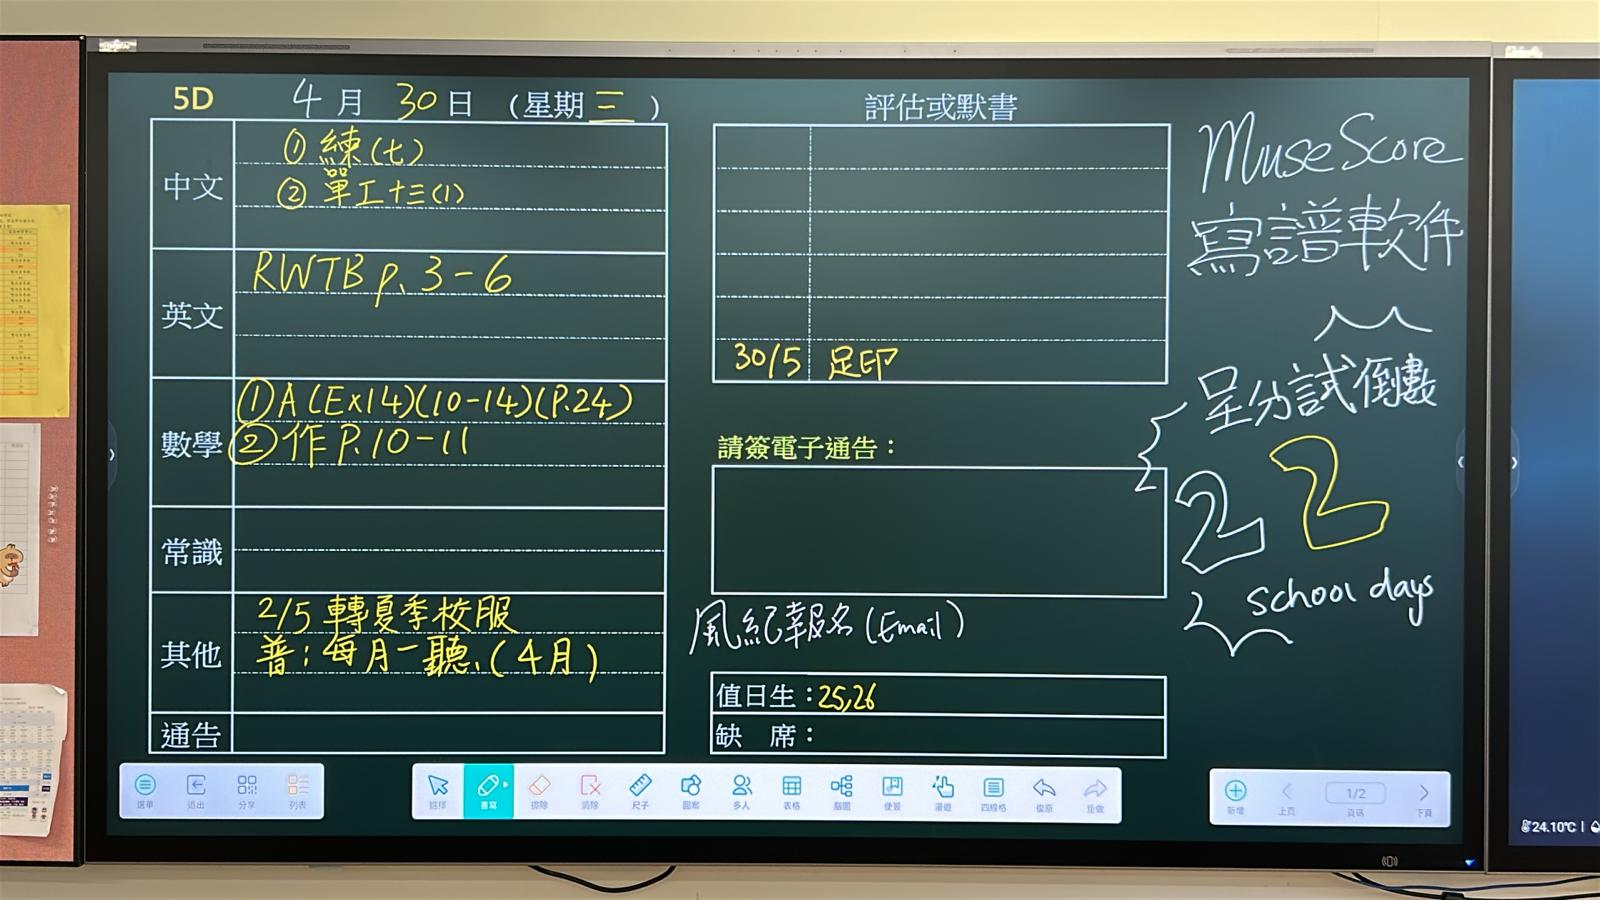 5D 4月30日（星期三）
中文
① 練(七)
② 單工十三(1)
英文
RWTB p. 3-6
數學
① A (Ex14)(10-14)(P.24)
② 作 P.10-11
常識
其他
2/5 轉夏季校服
普：每月一聽 (4月)
通告
評估或默書
30/5 足印
請簽電子通告：
風紀報名 (Email)
值日生：25,26
缺 席：
MuseScore
寫譜軟件
呈分試倒數
22
school days
選單 退出 分享 列表
選擇 書寫 擦除 清除 尺子 圖案 多人 表格 腦圖 便簽 漫遊 四線格 復原 重做
新增 上頁 1/2 頁碼 下頁
24.10℃